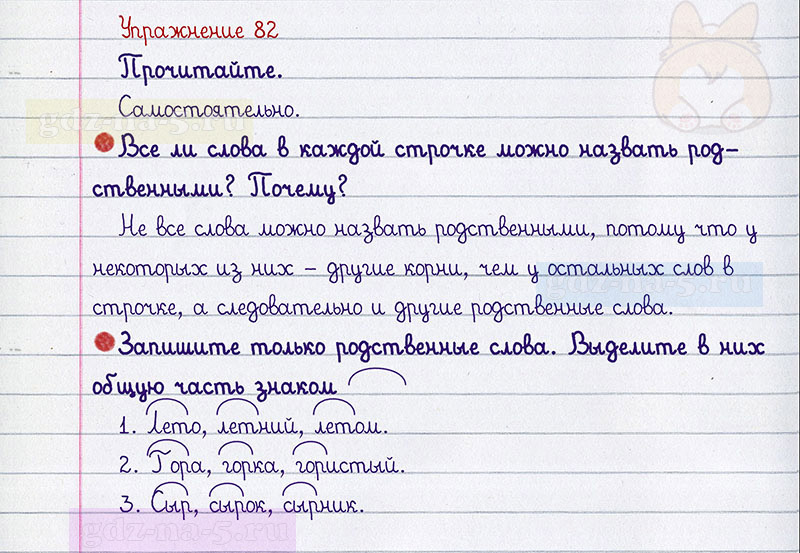 Упражнение 82
Прочитайте.
Самостоятельно.
gdz-na-5.ru
Все ли слова в каждой строчке можно назвать род-
ственными? Почему?
Не все слова можно назвать родственными, потому что у
некоторых из них – другие корни, чем у остальных слов в
gdz-na-5.ru
строчке, а следовательно и другие родственные слова.
Запишите только родственные слова. Выделите в них
общую часть знаком
1. Лето, летний, летом.
2. Гора, горка, гористый.
3. Сыр, сырок, сырник.
gdz-na-5.ru